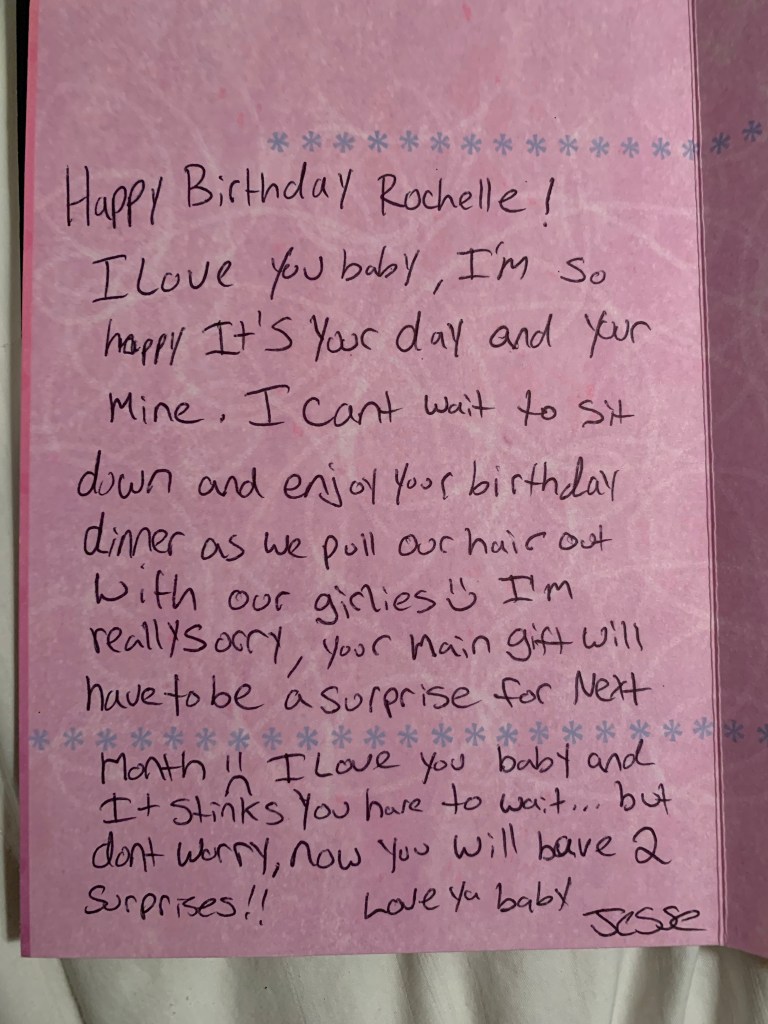 Happy Birthday Rochelle!
I Love you baby, I'm so
happy It's your day and your
Mine. I cant wait to sit
down and enjoy your birthday
dinner as we pull our hair out
with our girlies I'm
really sorry, your main gift will
have to be a surprise for Next
Month !! I Love you baby and
It stinks you have to wait... but
dont worry, now you will have 2
surprises!! Love ya baby
Jesse